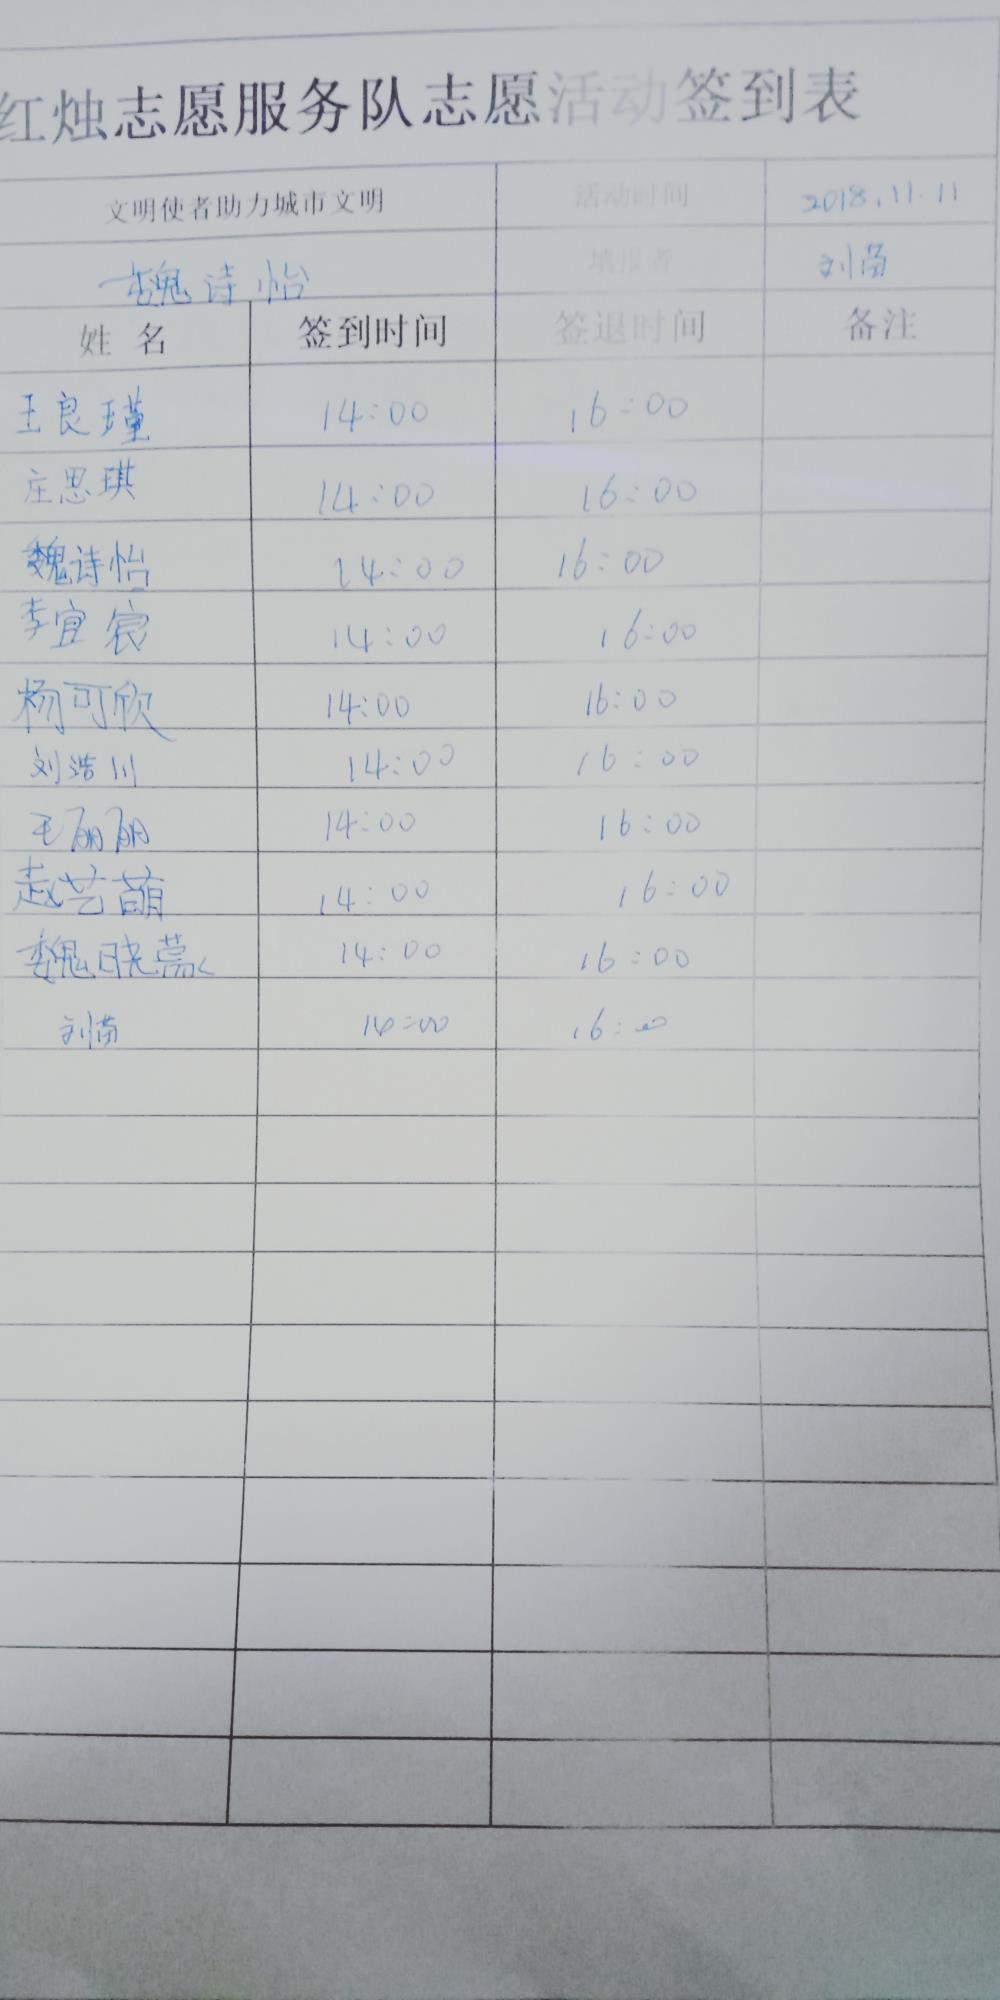 红烛志愿服务队志愿活动签到表
文明使者助力城市文明 活动时间 2018.11.11
魏诗怡 填报者 刘苗
姓名 签到时间 签退时间 备注
王良瑾 14:00 16:00
庄思琪 14:00 16:00
魏诗怡 14:00 16:00
李宜宸 14:00 16:00
杨可欣 14:00 16:00
刘浩川 14:00 16:00
王丽丽 14:00 16:00
赵艺萌 14:00 16:00
魏晓 14:00 16:00
刘苗 14:00 16:00